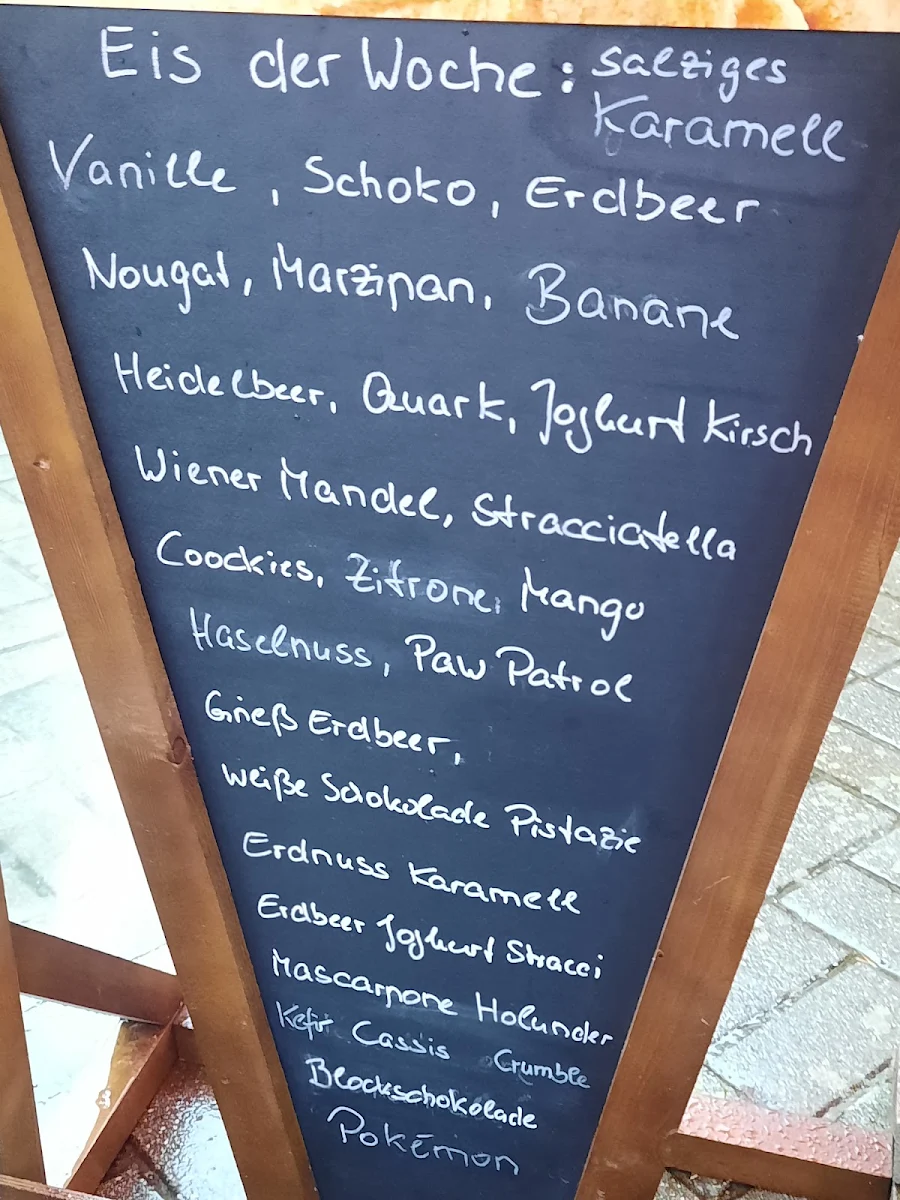 Eis der Woche: salziges
Karamell
Vanille, Schoko, Erdbeer
Nougat, Marzipan, Banane
Heidelbeer, Quark, Joghurt Kirsch
Wiener Mandel, Stracciatella
Coockies, Zitrone, Mango
Haselnuss, Paw Patrol
Grieß Erdbeer,
weiße Schokolade Pistazie
Erdnuss Karamell
Erdbeer Joghurt Stracci
Mascarpone Holunder
Kefir Cassis Crumble
Blockschokolade
Pokémon